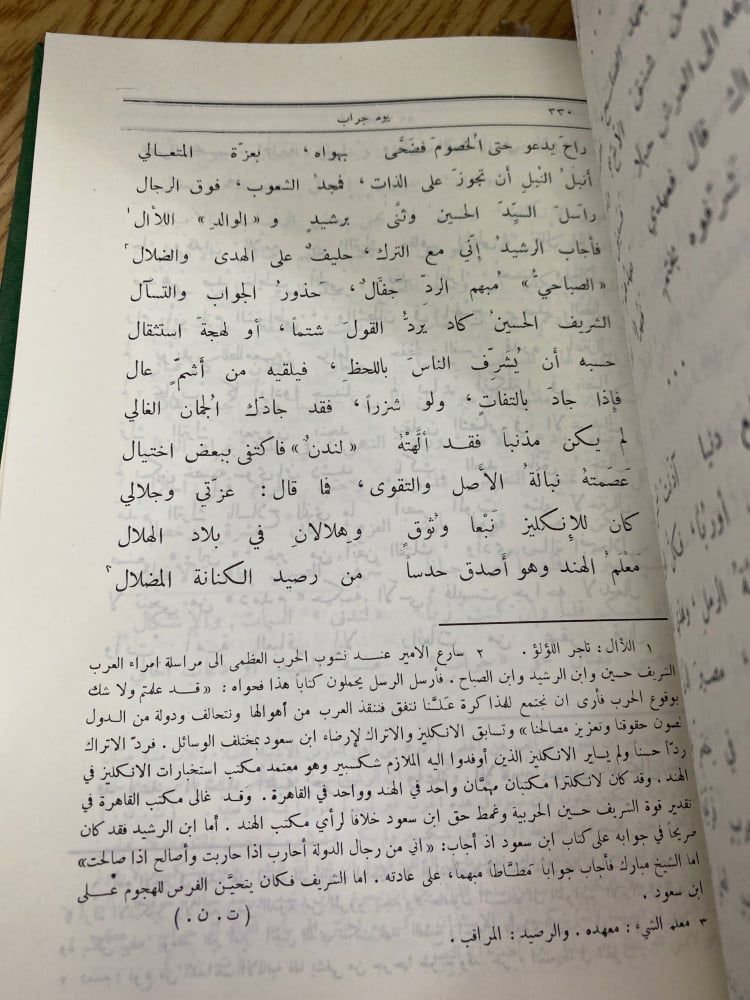 ٣٣٠
يوم جراب
راحَ يدعو حتى الخصومَ فضَحَّى بهواه، بعزّة المتعالي
أنبلُ النبلِ أن تجوزَ على الذات، فمجدُ الشعوب، فوق الرجال
راسَلَ السيِّدَ الحسين وثنَّى برشيدٍ و «الوالدِ» اللأال١
فأجاب الرشيدُ إنّي مع الترك، حليفٌ على الهدى والضلال٢
«الصباحيُّ» مُبهم الردّ جَفَّالٌ، حَذورُ الجواب والتسآل
الشريف الحسينُ كاد يَردُّ القولَ شتماً، أو لهجةَ استثقال
حسبه أن يُشَرِّف الناسَ باللحظِ، فيلقيه من أشمٍّ عال
فإذا جادَ بالتفاتٍ، ولو شزراً، فقد جادَك الجمان الغالي
لم يكن مذنباً فقد ألَّهتْهُ «لندنٌ» فاكتفى ببعض اختيال
عَصَمتهُ نبالَةُ الأصل والتقوى، فما قال: عزّتي وجلالي
كان للإنكليز نَبْعا وُثوقٍ وهِلالانِ في بلاد الهلال
مَعْلَمُ الهند وهو أصدق حدساً من رصيد الكنانة المضلال٣
١ اللأال: تاجر اللؤلؤ. ٢ سارع الامير عند نشوب الحرب العظمى الى مراسلة امراء العرب
الشريف حسين وابن الرشيد وابن الصباح. فأرسل الرسل يحملون كتاباً هذا فحواه: «قد علمتم ولا شك
بوقوع الحرب فأرى ان نجتمع للمذاكرة علَّنا نتفق فننقذ العرب من أهوالها ونتحالف ودولة من الدول
لصون حقوقنا وتعزيز مصالحنا» وتسابق الانكليز والاتراك لإرضاء ابن سعود بمختلف الوسائل. فردّ الاتراك
ردّاً حسناً ولم يساير الانكليز الذين أوفدوا اليه الملازم شكسبير وهو معتمد مكتب استخبارات الانكليز في
الهند. وقد كان لانكلترا مكتبان مهمَّان واحد في الهند وواحد في القاهرة. وقد غالى مكتب القاهرة في
تقدير قوة الشريف حسين الحربية وغمط حق ابن سعود خلافاً لرأي مكتب الهند. أما ابن الرشيد فقد كان
صريحاً في جوابه على كتاب ابن سعود اذ أجاب: «اني من رجال الدولة أحارب اذا حاربت وأصالح اذا صالحت»
اما الشيخ مبارك فأجاب جواباً مَطَّاطاً مبهماً، على عادته. اما الشريف فكان يتحيَّن الفرص للهجوم على
ابن سعود. (ت. ن.)
٣ معلم الشيء: معهده. والرصيد: المراقب.